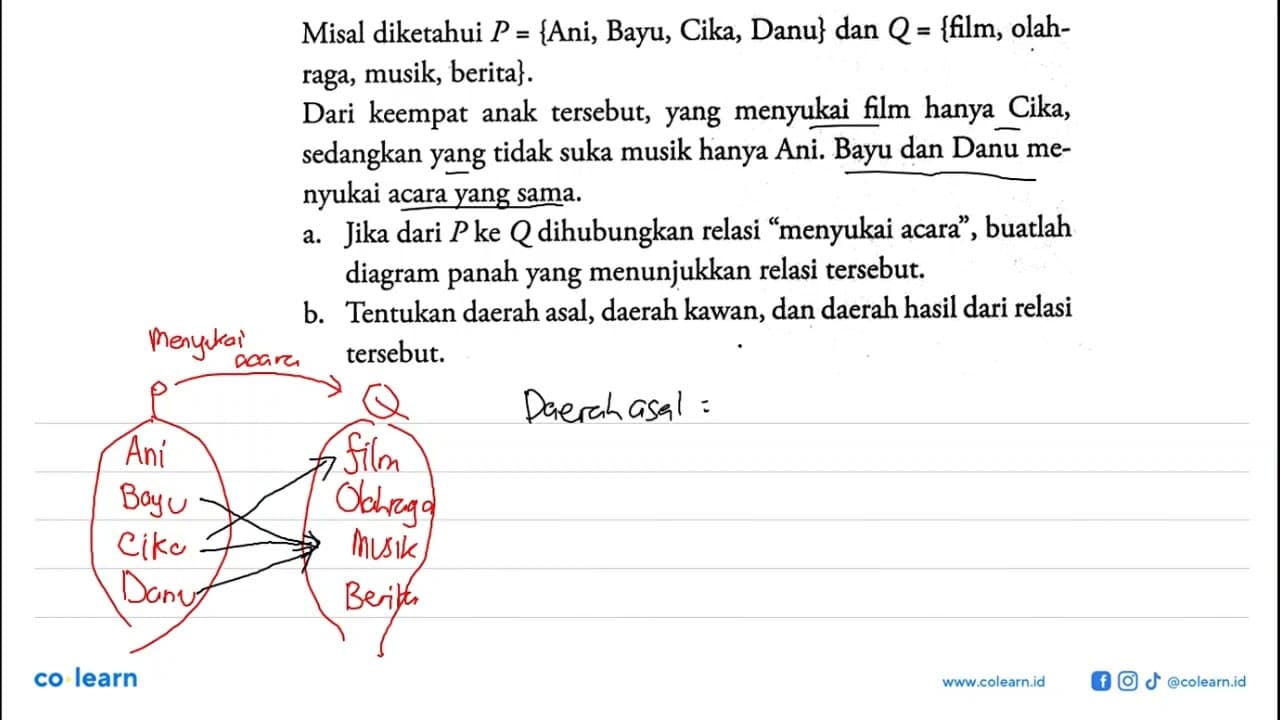 Misal diketahui P = {Ani, Bayu, Cika, Danu} dan Q = {film, olah-
raga, musik, berita}.
Dari keempat anak tersebut, yang menyukai film hanya Cika,
sedangkan yang tidak suka musik hanya Ani. Bayu dan Danu me-
nyukai acara yang sama.
a. Jika dari P ke Q dihubungkan relasi “menyukai acara”, buatlah
diagram panah yang menunjukkan relasi tersebut.
b. Tentukan daerah asal, daerah kawan, dan daerah hasil dari relasi
tersebut.
Menyukai
acara
P
Q
Daerah asal :
Ani
film
Bayu
Olahraga
Cika
Musik
Danu
Berita
co learn
www.colearn.id
@colearn.id